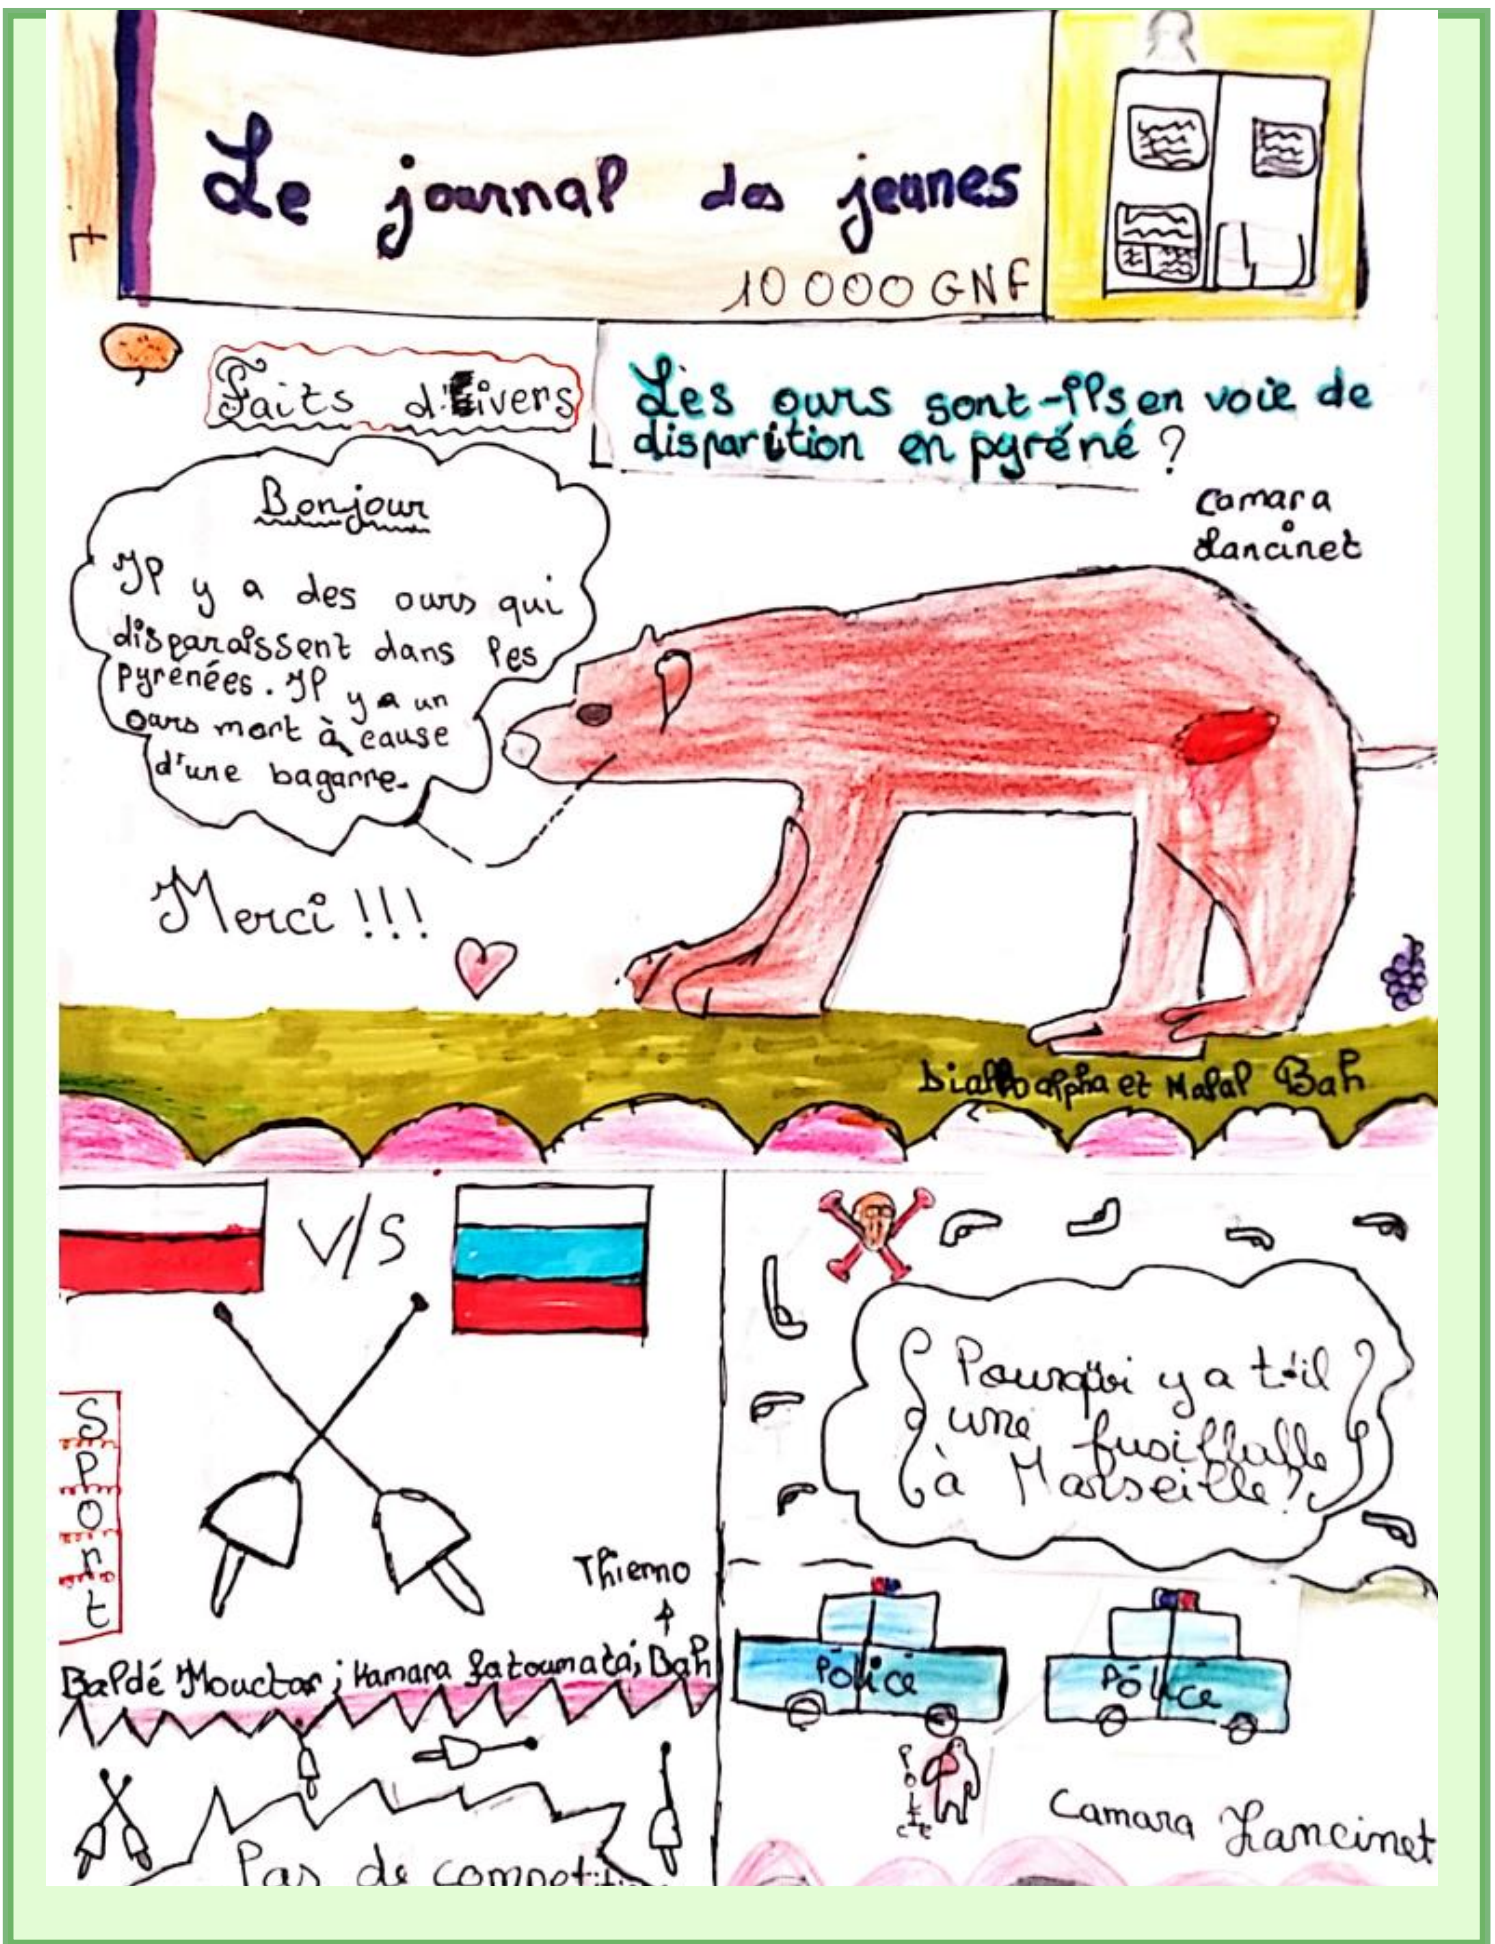 Le journal des jeunes
10 000 GNF
Faits divers
Les ours sont-ils en voie de
disparition en pyréné ?
Camara
Lancinet
Bonjour
Il y a des ours qui
disparaissent dans les
pyrénées. Il y a un
ours mort à cause
d'une bagarre.
Merci !!!
Diallo alpha et Malal Bah
V/S
Sport
Thierno
Baldé Mouctar ; Kamara fatoumata; Bah
Pas de competiti
Pourquoi y a t-il
une fusillalle
à Marseille?
Police
Police
Police
Camara Lancinet